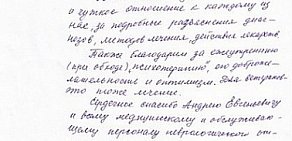 и чуткое отношение к каждому из
нас, за подробные разъяснения диаг-
нозов, методов лечения, действия лекарств.
Также благодарим за ежеутреннюю
(при обходе) „психотерапию", его доброже-
лательность и оптимизм. Для
это тоже лечение.
Сердечное спасибо Андрею Евгеньевичу
и всему медицинскому и обслуживаю-
щему персоналу неврологического от-